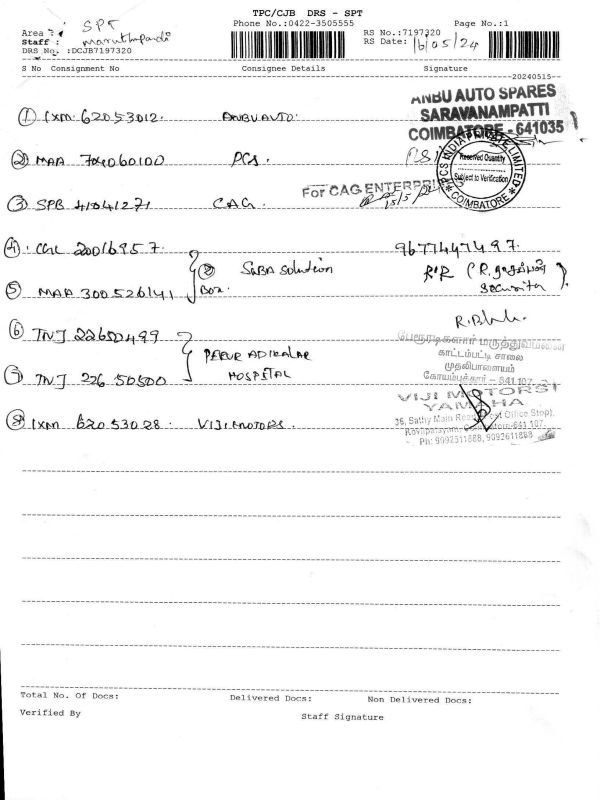 TPC/CJB DRS - SPT
Phone No.:0422-3505555 Page No.:1
Area : SPT
Staff : Maruthupandi
DRS No. :DCJB7197320
RS No.:7197320
RS Date: 16/05/24
S No Consignment No Consignee Details Signature
20240515
ANBU AUTO SPARES
SARAVANAMPATTI
COIMBATORE - 641035
① IXM 62053012. ANBU AUTO.
② MAA 704060100 PCS.
PCS INDIA PRIVATE LIMITED
Received Quantity
Subject to Verification
COIMBATORE
For CAG ENTERPRI
15/5/24
③ SPB 41041271 CAG.
④ CGL 20016957 9677447497
② SABA Solution R.R (R.
Box. Security)
⑤ MAA 300526141
⑥ TNJ 22650499
பேரூரடிகளார் மருத்துவமனை
காட்டம்பட்டி சாலை
முதலிபாளையம்
கோயம்புத்தூர் - 641 107.
PERUR ADIKALAR
HOSPITAL
⑦ TNJ 226 50500
VIJI MOTORS
YAMAHA
⑧ IXM 62053028. VIJI MOTORS.
36, Sathy Main Road, Office Stop).
Kovilpalayam, Coimbatore-641 107.
Ph: 9092511888, 9092611888
Total No. Of Docs: Delivered Docs: Non Delivered Docs:
Verified By Staff Signature